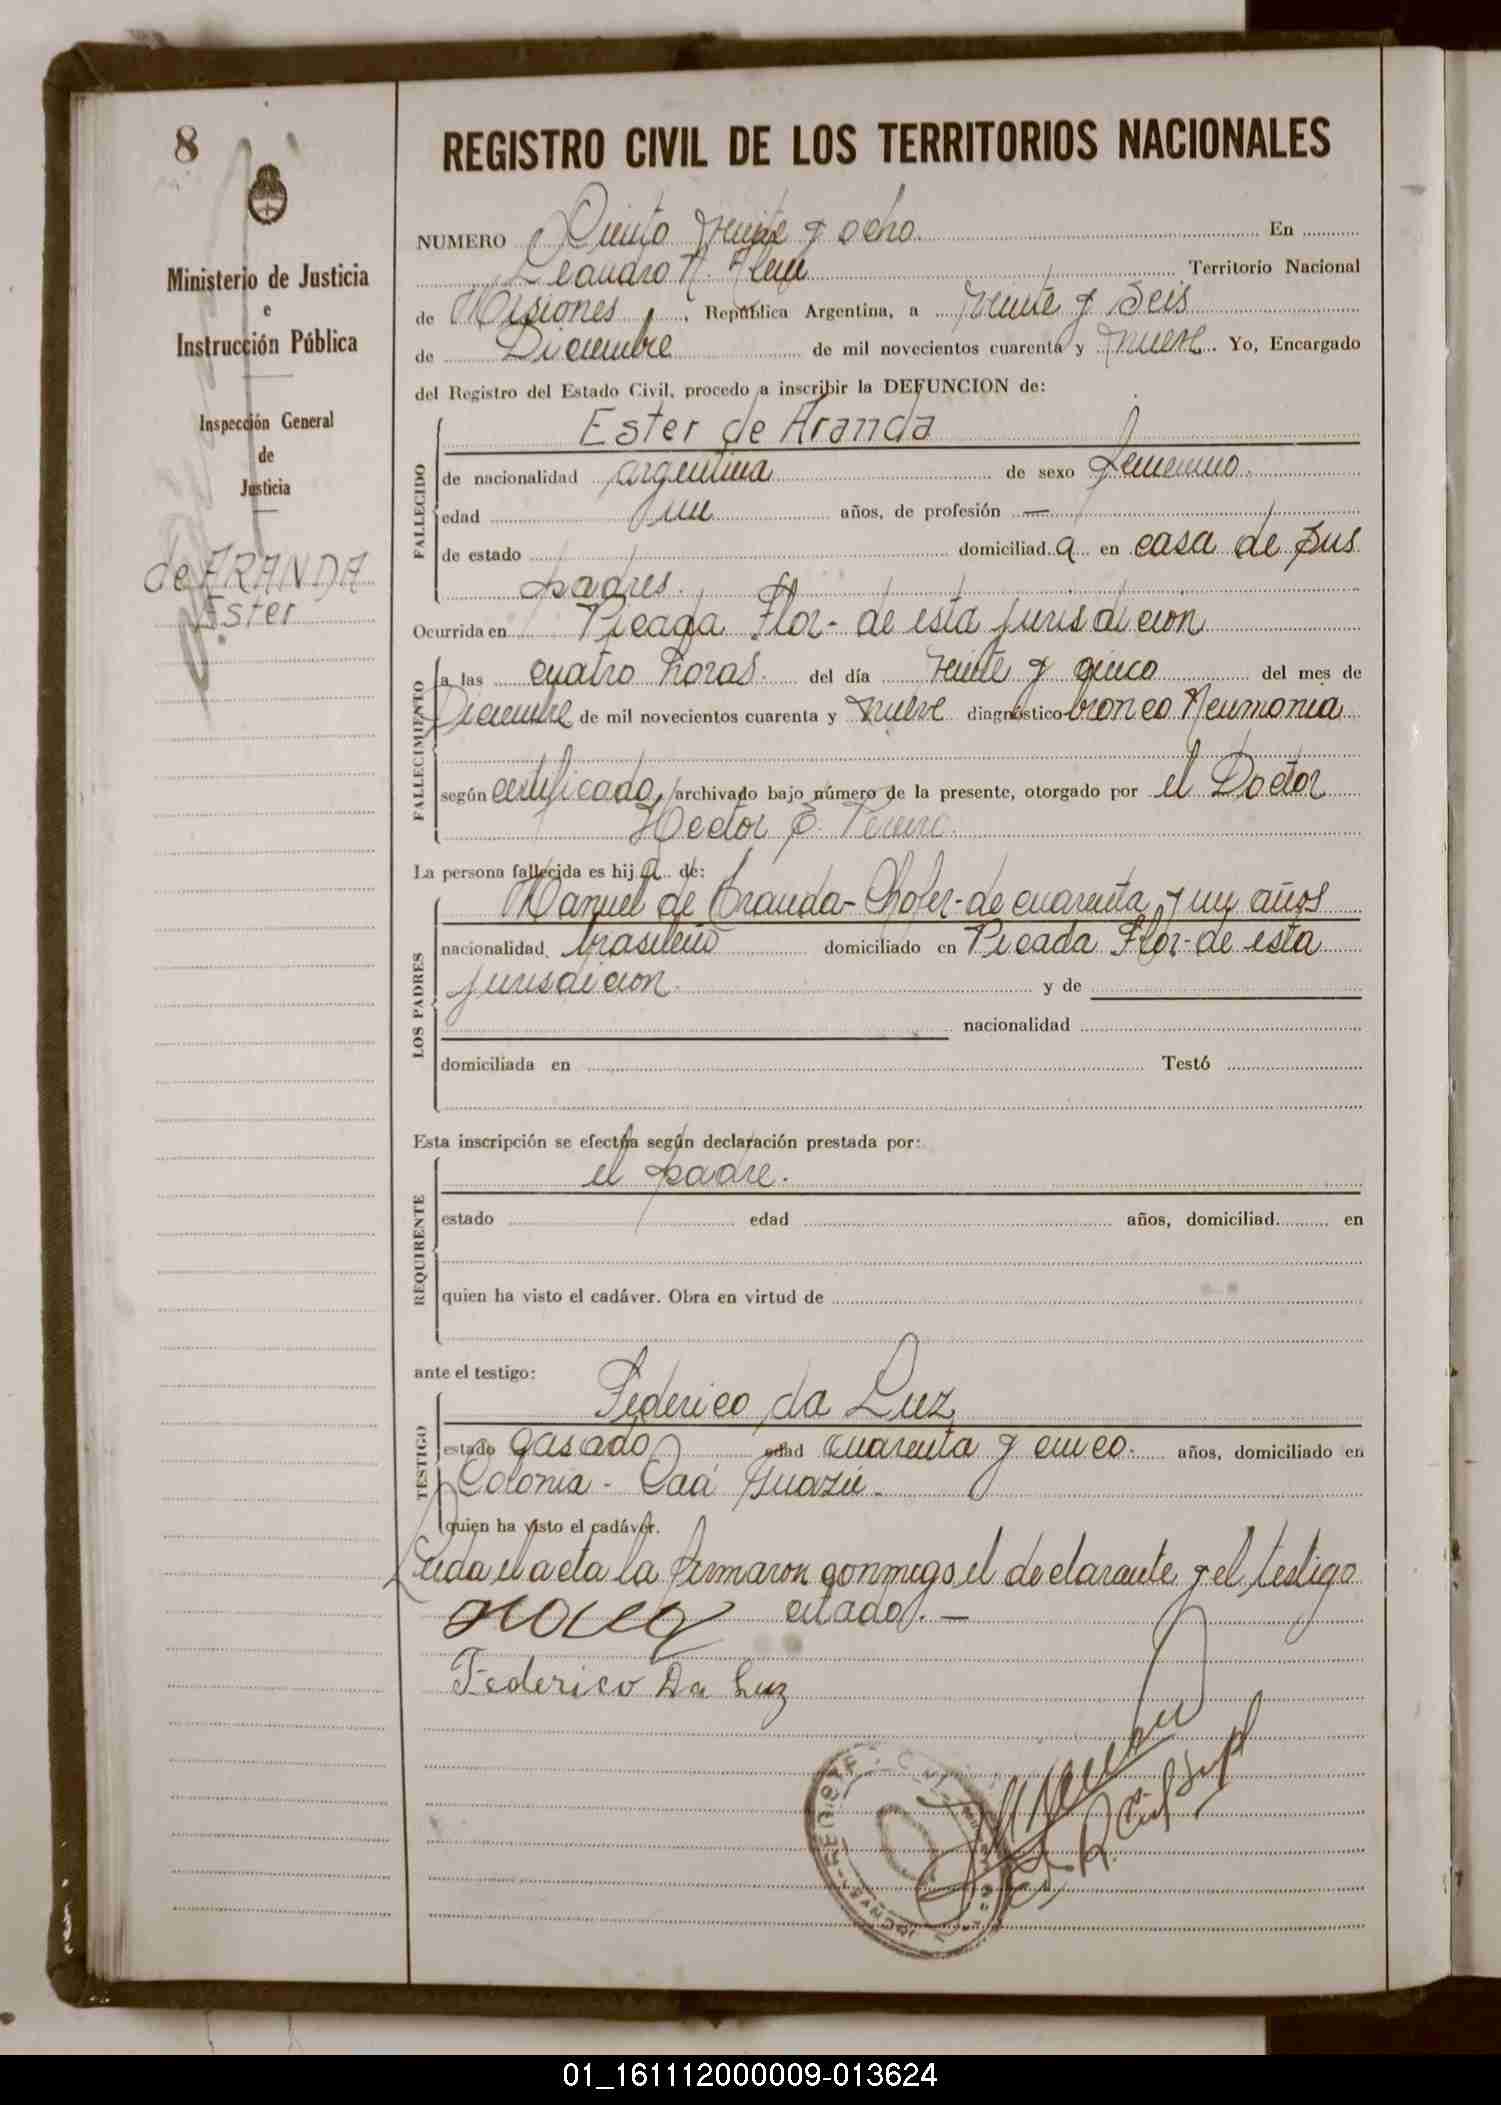 8
Ministerio de Justicia
e
Instrucción Pública
Inspección General
de
Justicia
de ARANDA
Ester
REGISTRO CIVIL DE LOS TERRITORIOS NACIONALES
NUMERO Ciento veinte y ocho En
Leandro N. Alem Territorio Nacional
de Misiones, República Argentina, a veinte y seis
de Diciembre de mil novecientos cuarenta y nueve. Yo, Encargado
del Registro del Estado Civil, procedo a inscribir la DEFUNCION de:
FALLECIDO
Ester de Aranda
de nacionalidad argentina de sexo femenino.
edad un años, de profesión —
de estado domiciliad a en casa de sus
padres.
Ocurrida en Picada Flor - de esta jurisdicion
FALLECIMIENTO
a las cuatro horas. del día veinte y cinco del mes de
Diciembre de mil novecientos cuarenta y nueve diagnóstico bronco Neumonia
según certificado, archivado bajo número de la presente, otorgado por el Doctor
Hector E.
La persona fallecida es hij a de:
LOS PADRES
Manuel de Aranda - Chofer - de cuarenta y un años
nacionalidad brasileño domiciliado en Picada Flor - de esta
jurisdicion. y de
nacionalidad
domiciliada en Testó
Esta inscripción se efectúa según declaración prestada por:
REQUIRENTE
el padre.
estado edad años, domiciliad en
quien ha visto el cadáver. Obra en virtud de
ante el testigo:
TESTIGO
Federico da Luz
estado casado edad cuarenta y cinco. años, domiciliado en
Colonia - Caá Guazú.
quien ha visto el cadáver.
Leida el acta la firmaron conmigo el declarante y el testigo
citado. —
Federico Da Luz
01_161112000009-013624